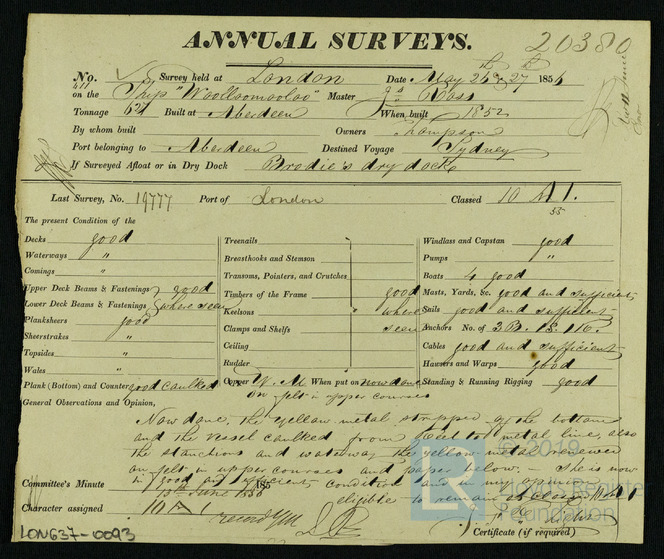 ANNUAL SURVEYS.
20380
No. Survey held at London Date May 26th & 27th 1856
on the Ship "Woolloomooloo" Master Jas Ross
Tonnage 627 Built at Aberdeen When built 1852
By whom built Owners Thompson
Port belonging to Aberdeen Destined Voyage Sydney
If Surveyed Afloat or in Dry Dock Brodie's dry dock
Last Survey, No. 19777 Port of London Classed 10 A 1.
55
The present Condition of the
Decks good
Waterways "
Comings "
Upper Deck Beams & Fastenings } good
Lower Deck Beams & Fastenings } where seen
Planksheers good
Sheerstrakes "
Topsides "
Wales "
Plank (Bottom) and Counter good caulked
Treenails
Breasthooks and Stemson
Transoms, Pointers, and Crutches
Timbers of the Frame good
Keelsons where
Clamps and Shelfs seen
Ceiling
Rudder
Copper Y. M When put on now done
on felt in upper courses
Windlass and Capstan good
Pumps "
Boats 4 good
Masts, Yards, &c. good and sufficient
Sails good and sufficient
Anchors No. of 3 B. 1 S. 1 K.
Cables good and sufficient
Hawsers and Warps good
Standing & Running Rigging good
General Observations and Opinion,
Now done, the yellow metal stripped off the bottom
and the vessel caulked from keel to metal line, also
the stanchions and waterway the yellow metal renewed
on felt in upper courses and paper below. She is now
in good and efficient condition and in my opinion
eligible to remain as classed
Committee's Minute 185
13th June 1856
Character assigned 10 A 1
Certificate (if required)
LON637-0093
© 2019
Lloyd's Register
Foundation